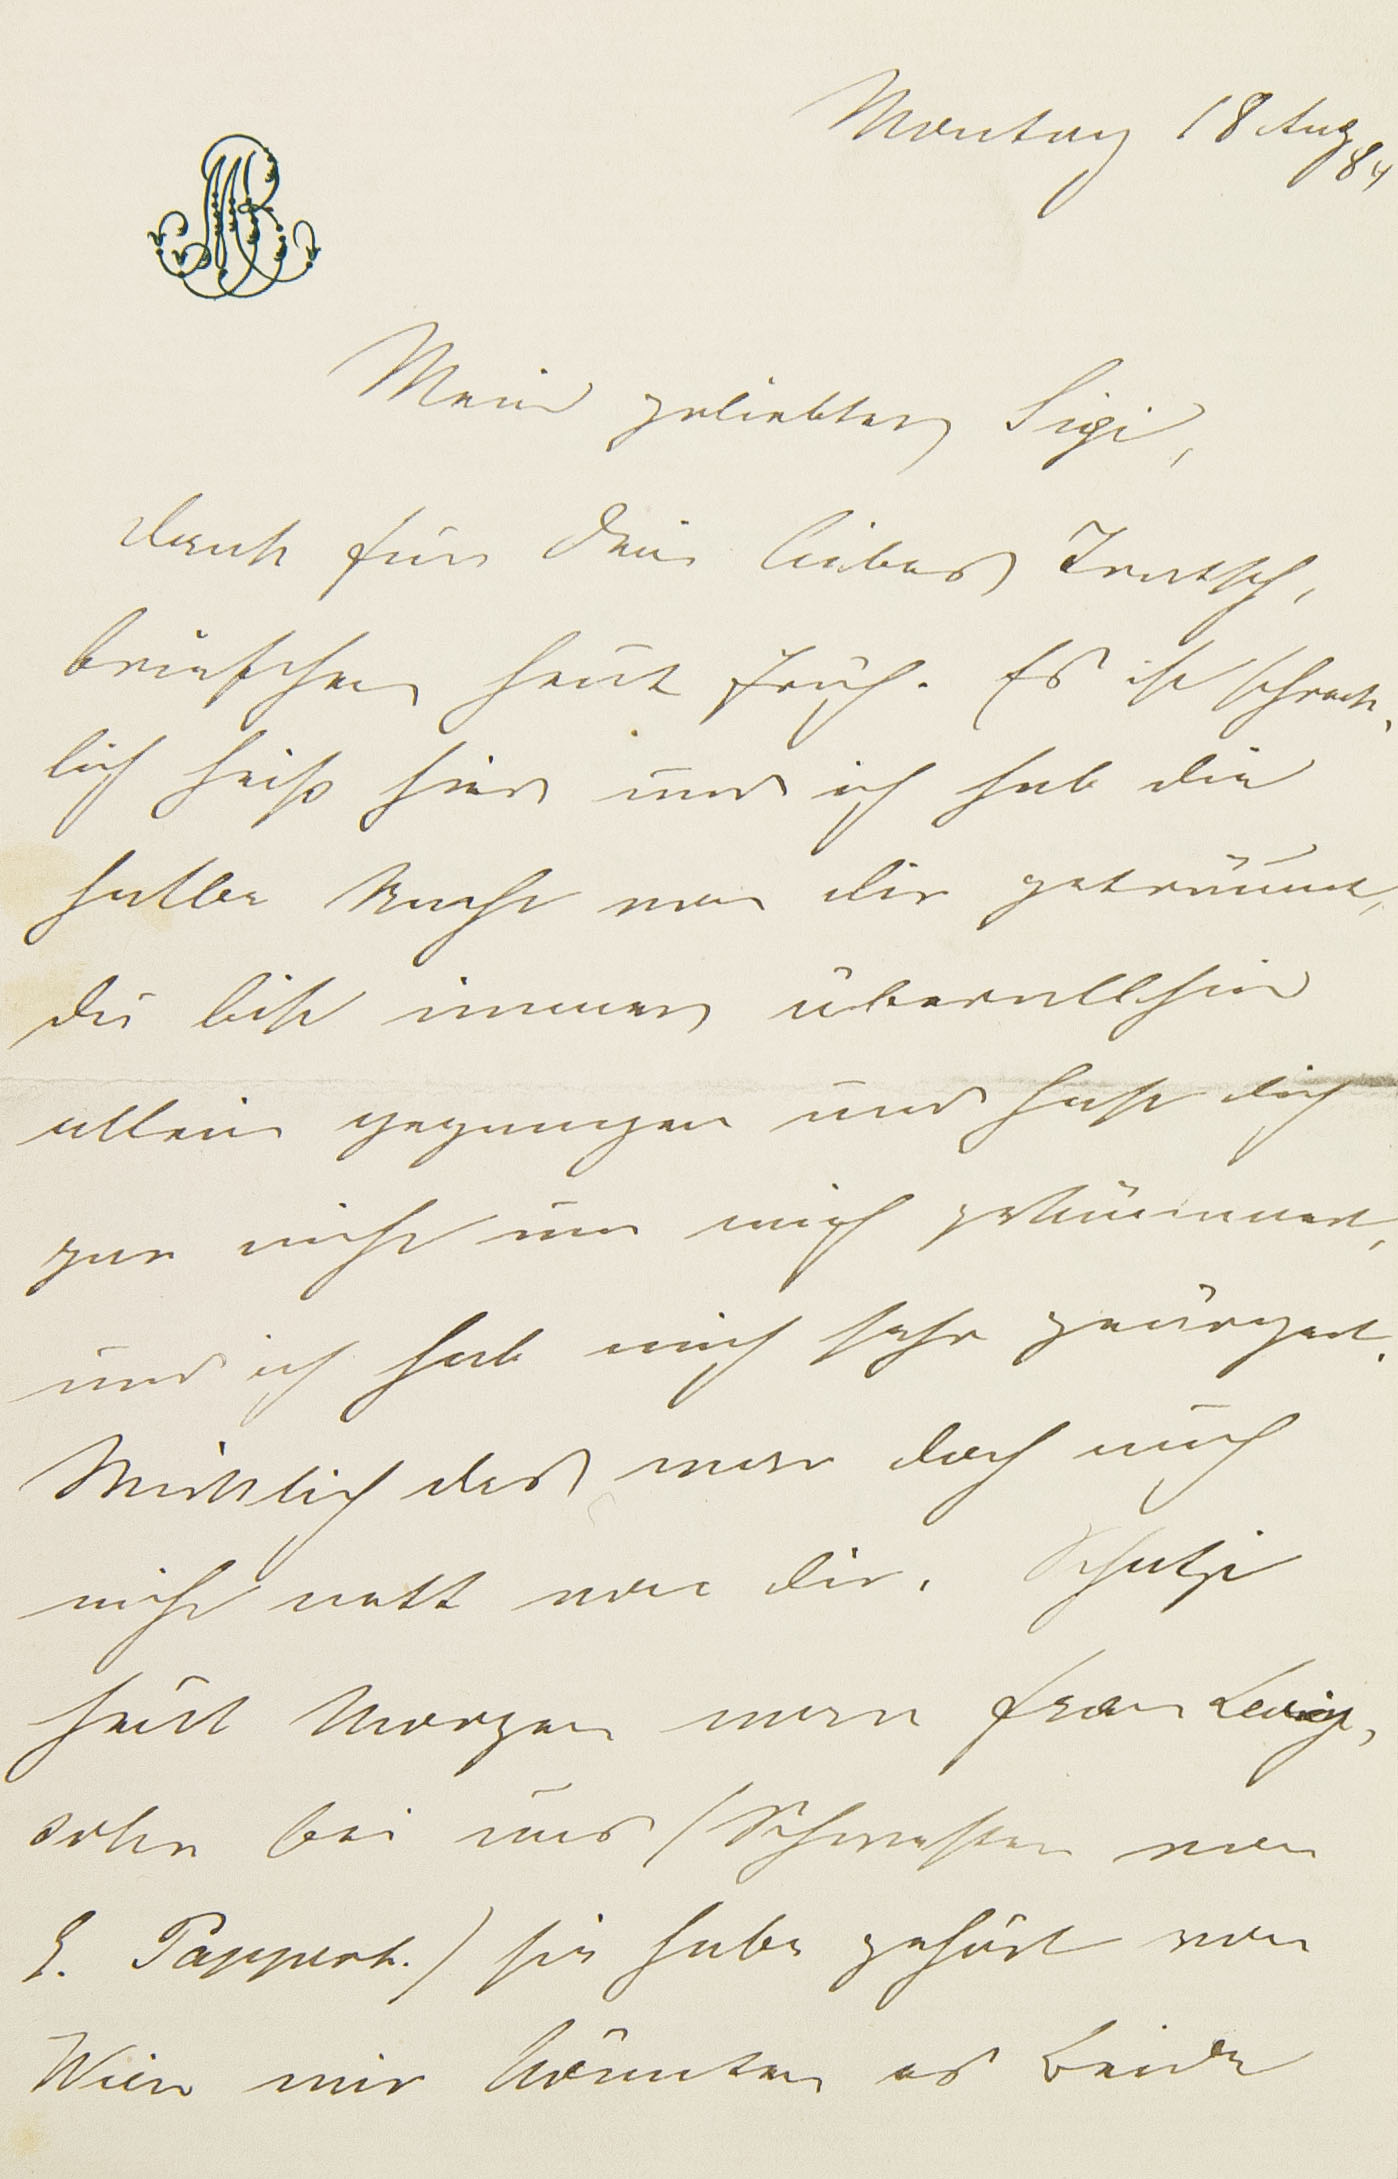 MB
Montag 18 Aug
84
Mein geliebter Sigi,
dank für Dein liebes Tratsch,
briefchen heut früh. Es ist schreck,
lich heiß hier und ich hab die
halbe Nacht von dir geträumt,
du bist immer überallhin
allein gegangen und hast dich
gar nicht um mich gekümmert,
und ich hab mich sehr geärgert.
Wirklich das war doch auch
nicht nett von dir. Schatzi
heut Morgen war Frau
sohn bei uns (Schwester von
E. Pappenh.) sie habe gehört von
Wien wir könnten es Beide